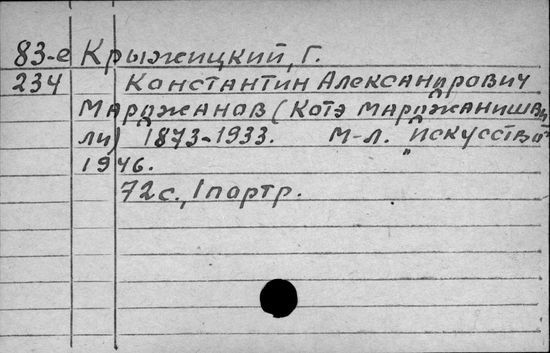 83-е Крыжицкий, Г.
234 Константин Александрович
Марджанов (Котэ Марджанишви
ли) 1873-1933. М-л. "Искусство"
1946.
72с., 1 портр.